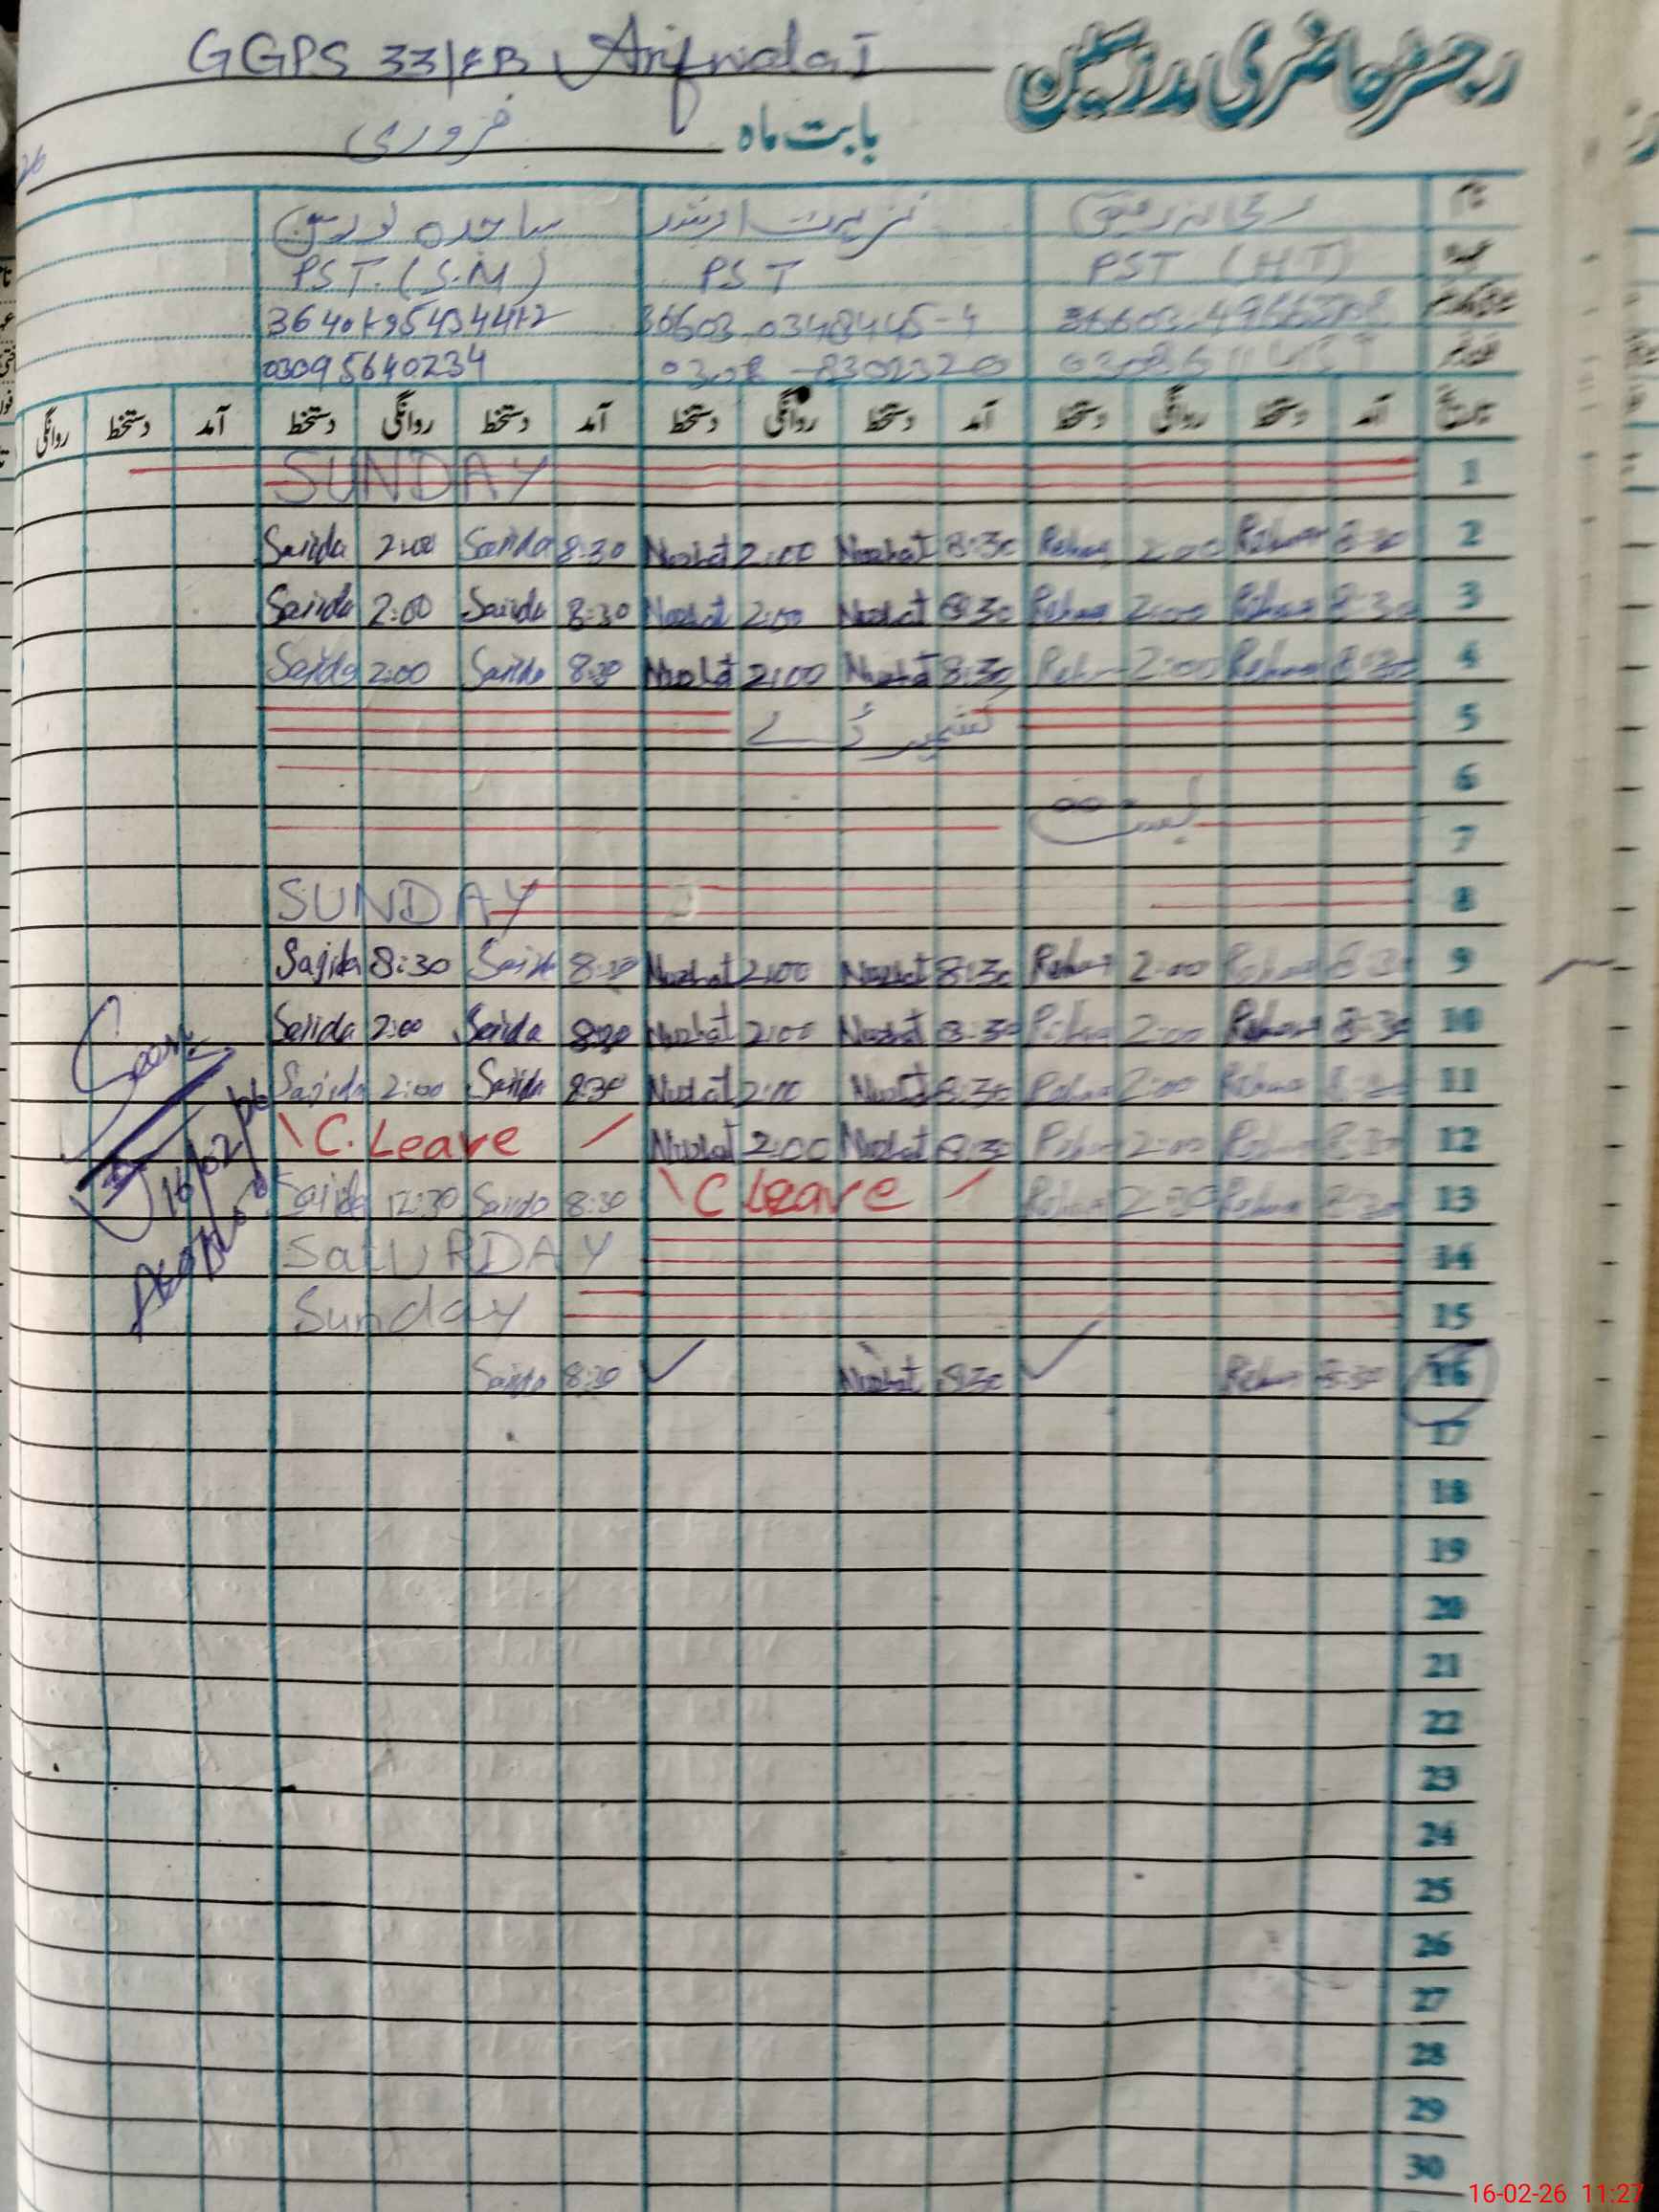 GGPS 33/EB Arifwala I
رجسٹر حاضری مدرسین
بابت ماہ فروری
نام
عہدہ PST (HT) PST PST. (S.M)
0308-8302320 03095640234
تاریخ آمد دستخط روانگی دستخط آمد دستخط روانگی دستخط آمد دستخط روانگی دستخط آمد دستخط روانگی
SUNDAY 1
Sajida 2:00 Sajida 8:30 Nuzhat 2:00 Nuzhat 8:30 Rehana 2:00 Rehana 8:30 2
Sajida 2:00 Sajida 8:30 Nuzhat 2:00 Nuzhat 8:30 Rehana 2:00 Rehana 8:30 3
Sajida 2:00 Sajida 8:30 Nuzhat 2:00 Nuzhat 8:30 Rehana 2:00 Rehana 8:30 4
کشمیر ڈے 5
6
بسنت 7
SUNDAY 8
Sajida 8:30 Sajida 8:30 Nuzhat 2:00 Nuzhat 8:30 Rehana 2:00 Rehana 8:30 9
Sajida 2:00 Sajida 8:30 Nuzhat 2:00 Nuzhat 8:30 Rehana 2:00 Rehana 8:30 10
Sajida 2:00 Sajida 8:30 Nuzhat 2:00 Nuzhat 8:30 Rehana 2:00 Rehana 8:30 11
C. Leave Nuzhat 2:00 Nuzhat 8:30 Rehana 2:00 Rehana 8:30 12
Sajida 12:30 Sajida 8:30 C Leave Rehana 12:30 Rehana 8:30 13
SatURDAY 14
Sunday 15
Sajida 8:30 Nuzhat 8:30 Rehana 8:30 16
Seen
16/02/26
17
18
19
20
21
22
23
24
25
26
27
28
29
30
16-02-26 11:27